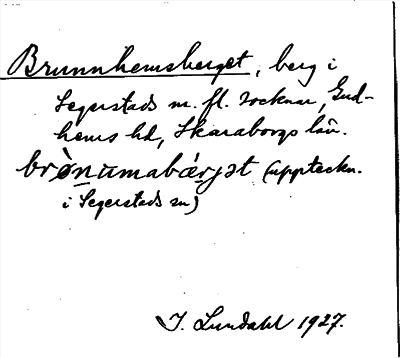 Brunnhemsberget, berg i
Segerstads m. fl. socknar, Gud-
hems hd, Skaraborgs län.
brònumabærjət (uppteckn.
i Segerstads sn)
I. Lundahl 1927.